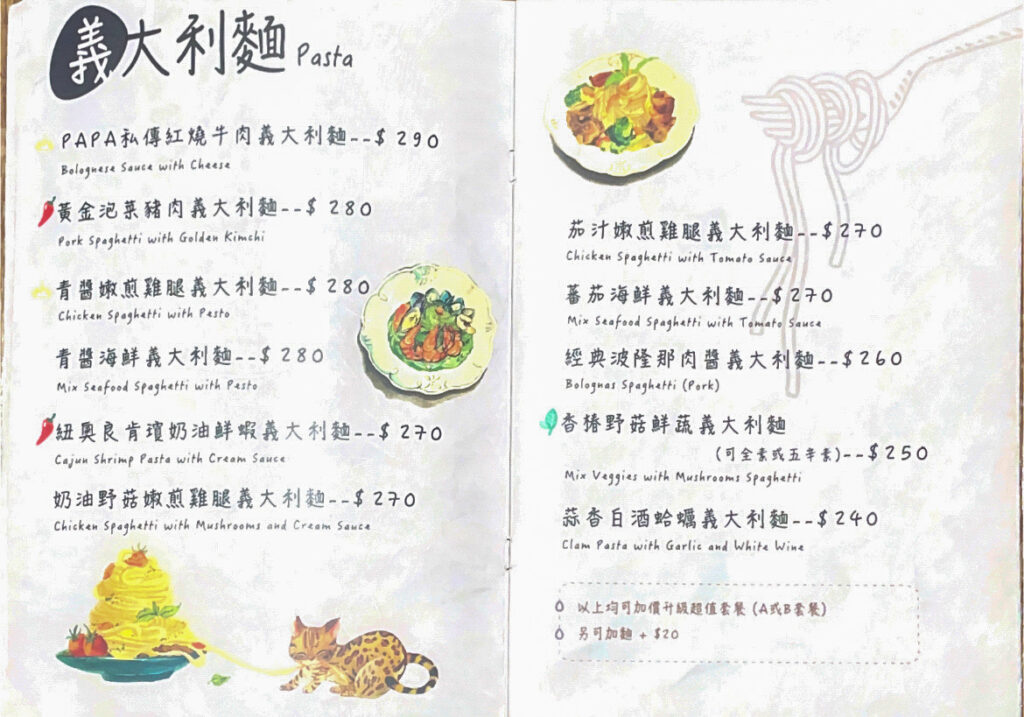 義大利麵 Pasta
PAPA私傳紅燒牛肉義大利麵--$ 290
Bolognese Sauce with Cheese
黃金泡菜豬肉義大利麵--$ 280
Pork Spaghetti with Golden Kimchi
青醬嫩煎雞腿義大利麵--$ 280
Chicken Spaghetti with Pesto
青醬海鮮義大利麵--$ 280
Mix Seafood Spaghetti with Pesto
紐奧良肯瓊奶油鮮蝦義大利麵--$ 270
Cajun Shrimp Pasta with Cream Sauce
奶油野菇嫩煎雞腿義大利麵--$ 270
Chicken Spaghetti with Mushrooms and Cream Sauce
茄汁嫩煎雞腿義大利麵--$ 270
Chicken Spaghetti with Tomato Sauce
蕃茄海鮮義大利麵--$ 270
Mix Seafood Spaghetti with Tomato Sauce
經典波隆那肉醬義大利麵--$ 260
Bolognas Spaghetti (Pork)
香椿野菇鮮蔬義大利麵
(可全素或五辛素)--$ 250
Mix Veggies with Mushrooms Spaghetti
蒜香白酒蛤蠣義大利麵--$ 240
Clam Pasta with Garlic and White Wine
以上均可加價升級超值套餐 (A或B套餐)
另可加麵 + $20